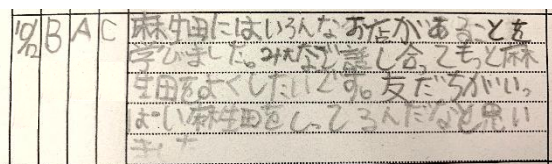 10/12 B A C 麻生田にはいろんなお店があることを
学びました。みんなで話し合ってもっと麻
生田をよくしたいです。友だちがいっ
ぱい麻生田をしってるんだなと思い
ました